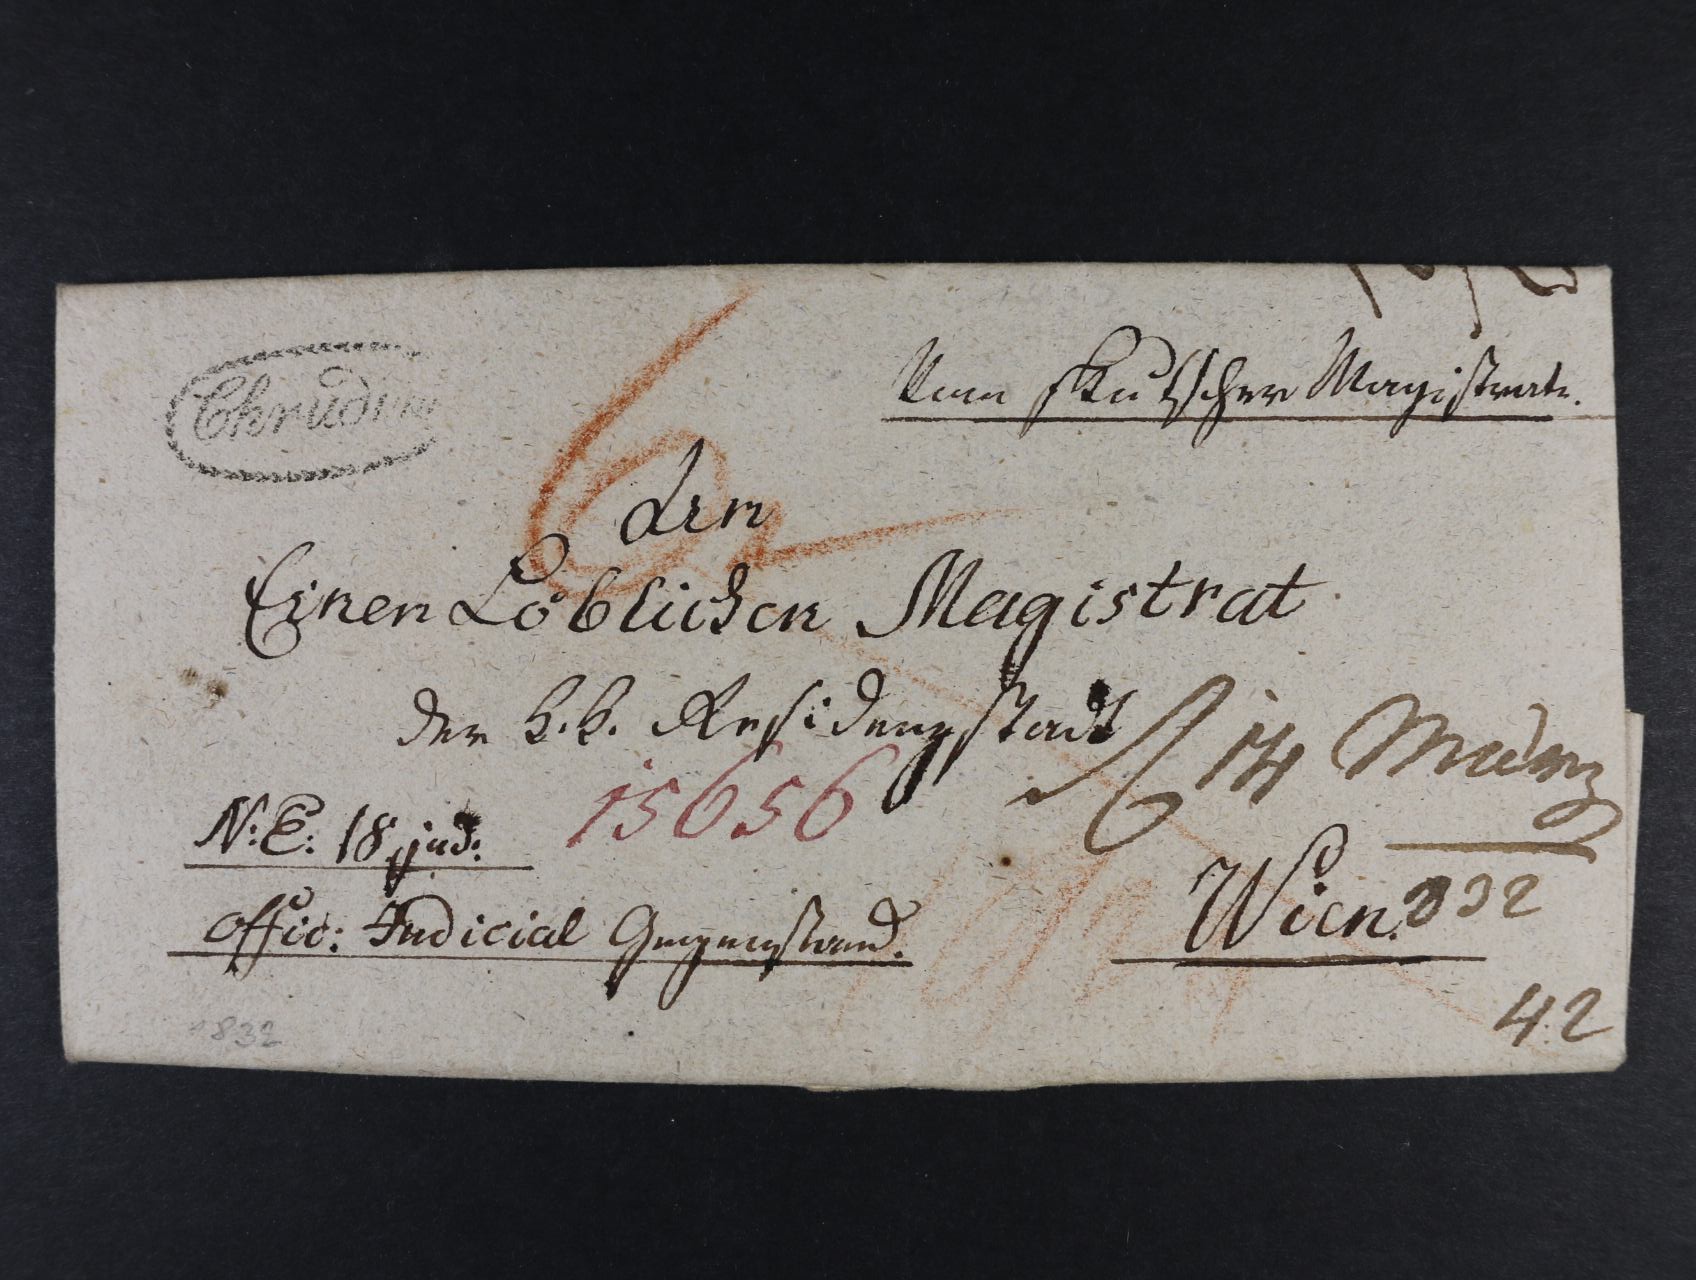 Chrudim
Vom Skutscher Magistrate.
6
dem
Einen Löblichen Magistrat
der k. k. Residenzstadt
14 März
15656
N: E: 18 jud:
Wien.
832
Offic: Judicial Gegenstand.
42
1832